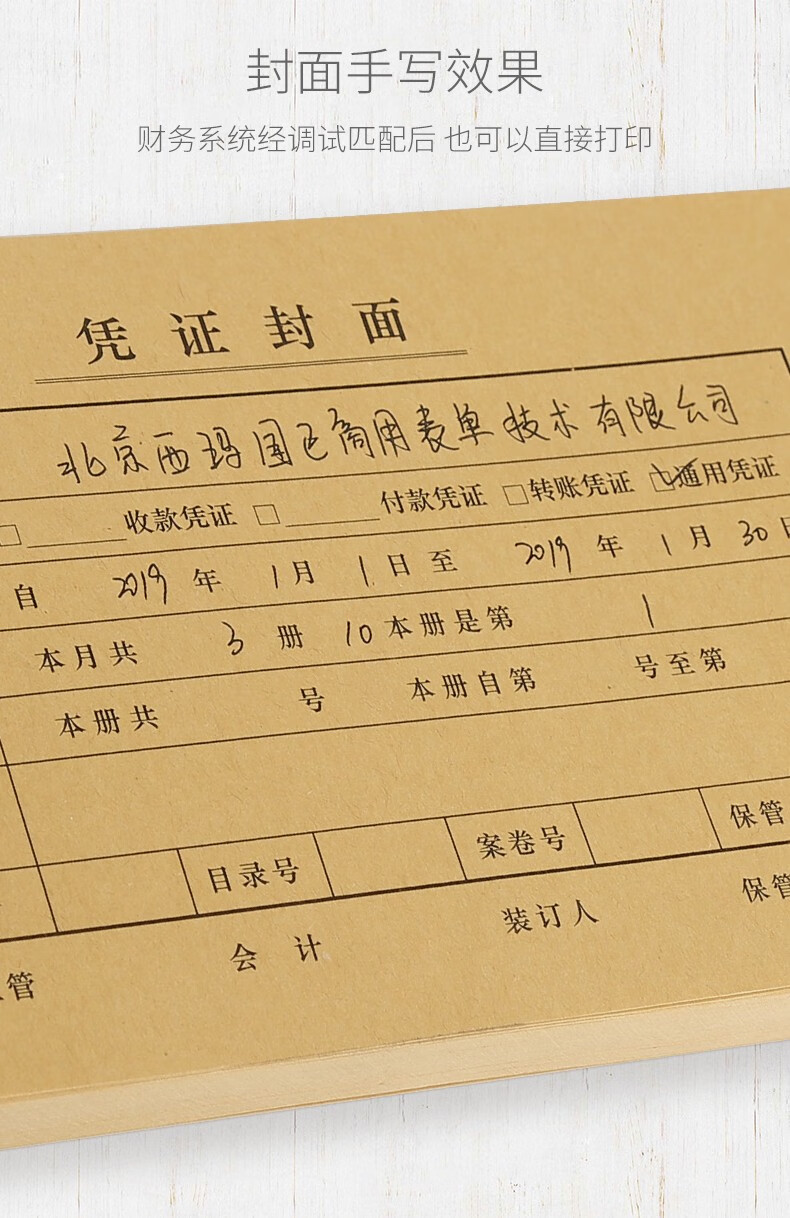 封面手写效果
财务系统经调试匹配后 也可以直接打印
凭证封面
北京西玛国正商用表单技术有限公司
□______收款凭证 □______付款凭证 □转账凭证 ☑通用凭证
自 2019 年 1 月 1 日至 2019 年 1 月 30 日
本月共 3 册 10 本册是第 1
本册共 号 本册自第 号至第
目录号 案卷号 保管
管 会 计 装订人 保管